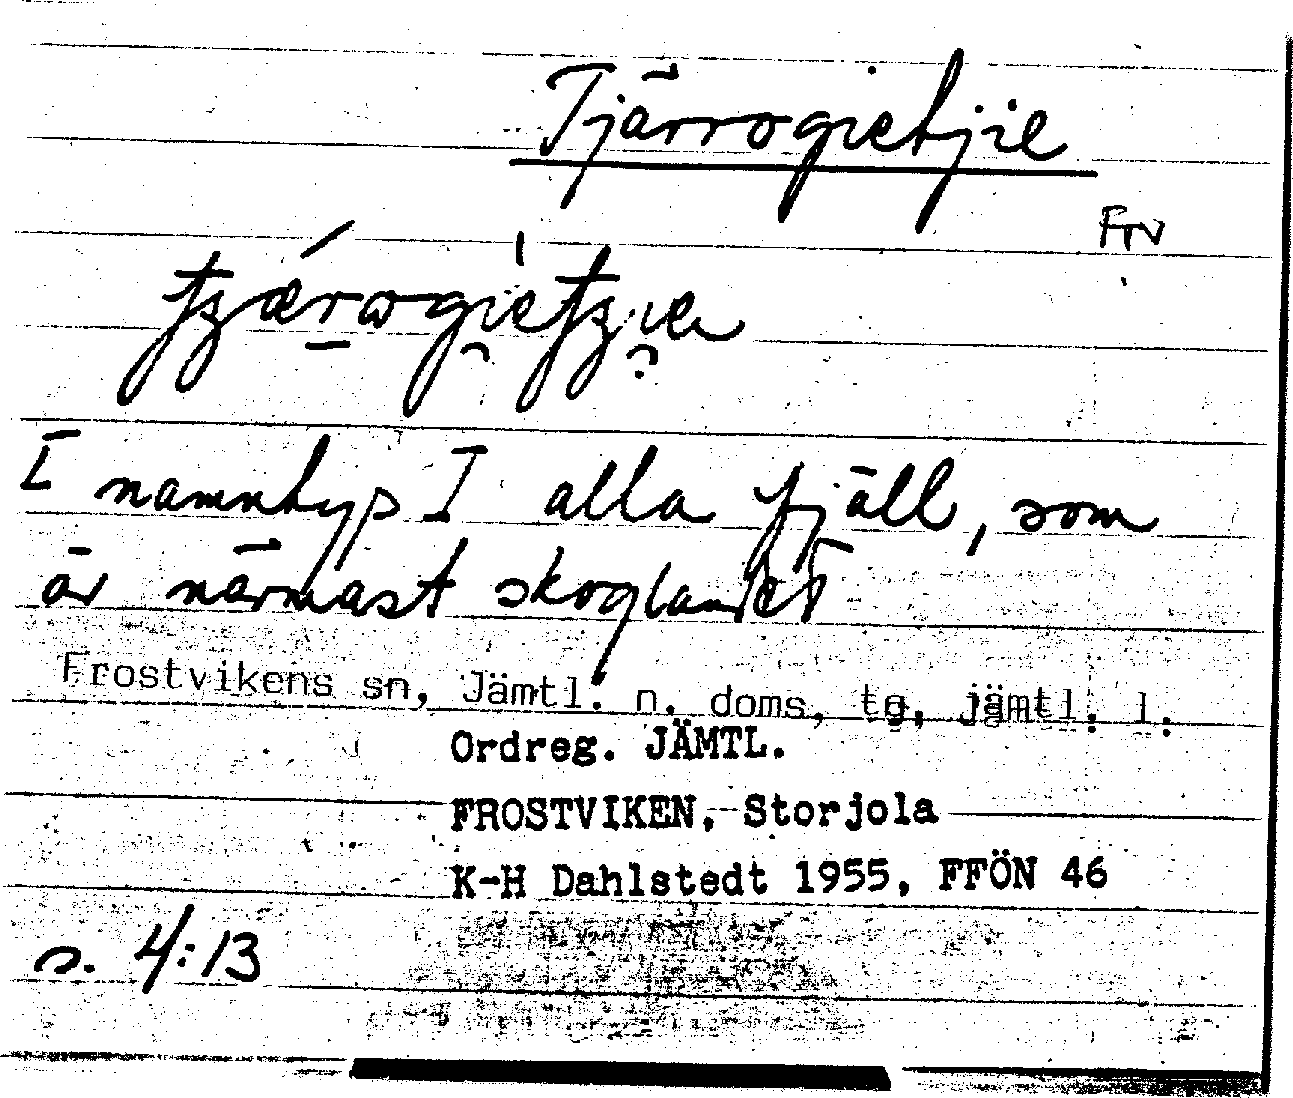 Tjärrogietjie
Frv
I namntyp I alla fjäll, som
är närmast skoglandet
Frostvikens sn, Jämtl. n. doms, tg, jämtl. l.
Ordreg. JÄMTL.
FROSTVIKEN, Storjola
K-H Dahlstedt 1955, FFÖN 46
s. 4:13